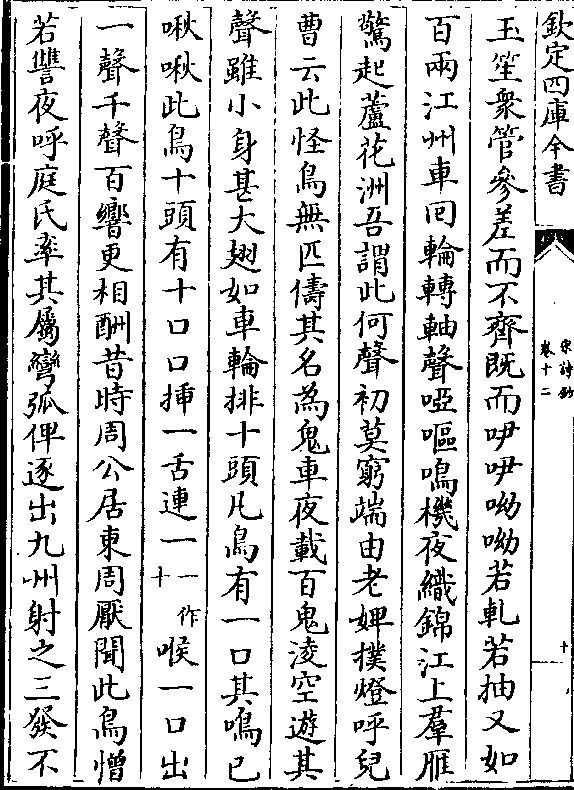 欽定四庫全書
宋詩鈔
卷十二
十
玉笙衆管參差而不齊既而咿咿呦呦若軋若抽又如
百兩江州車回輪轉軸聲啞嘔鳴機夜織錦江上羣雁
驚起蘆花洲吾謂此何聲初莫窮端由老婢撲燈呼兒
曹云此怪鳥無匹儔其名為鬼車夜載百鬼淩空遊其
聲雖小身甚大翅如車輪排十頭凡鳥有一口其鳴已
啾啾此鳥十頭有十口口揷一舌連一一作十喉一口出
一聲千聲百響更相酬昔時周公居東周厭聞此鳥憎
若讐夜呼庭氏率其屬彎弧俾逐出九州射之三發不